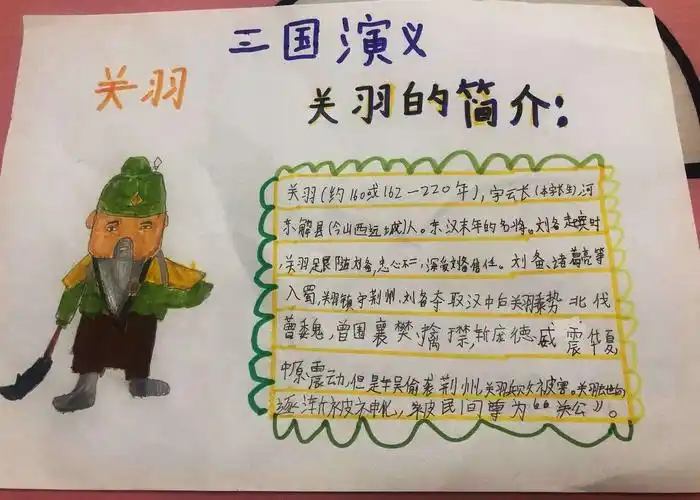 三国演义
关羽
关羽的简介:
关羽(约160或162—220年),字云长(本字长生)河
东解县(今山西运城)人。东汉末年的名将。刘备起兵时
,关羽足艮随刘备,忠心不二,深受刘备信任。刘备、诸葛亮等
入蜀,关羽镇守荆州,刘备夺取汉中后关羽乘势北伐
曹魏,曾围襄樊、擒禁,斩庞德、威震华夏
中原震动,但是吴偷袭荆州,关羽。关羽
逐渐被神化,被民间尊为“关公”。